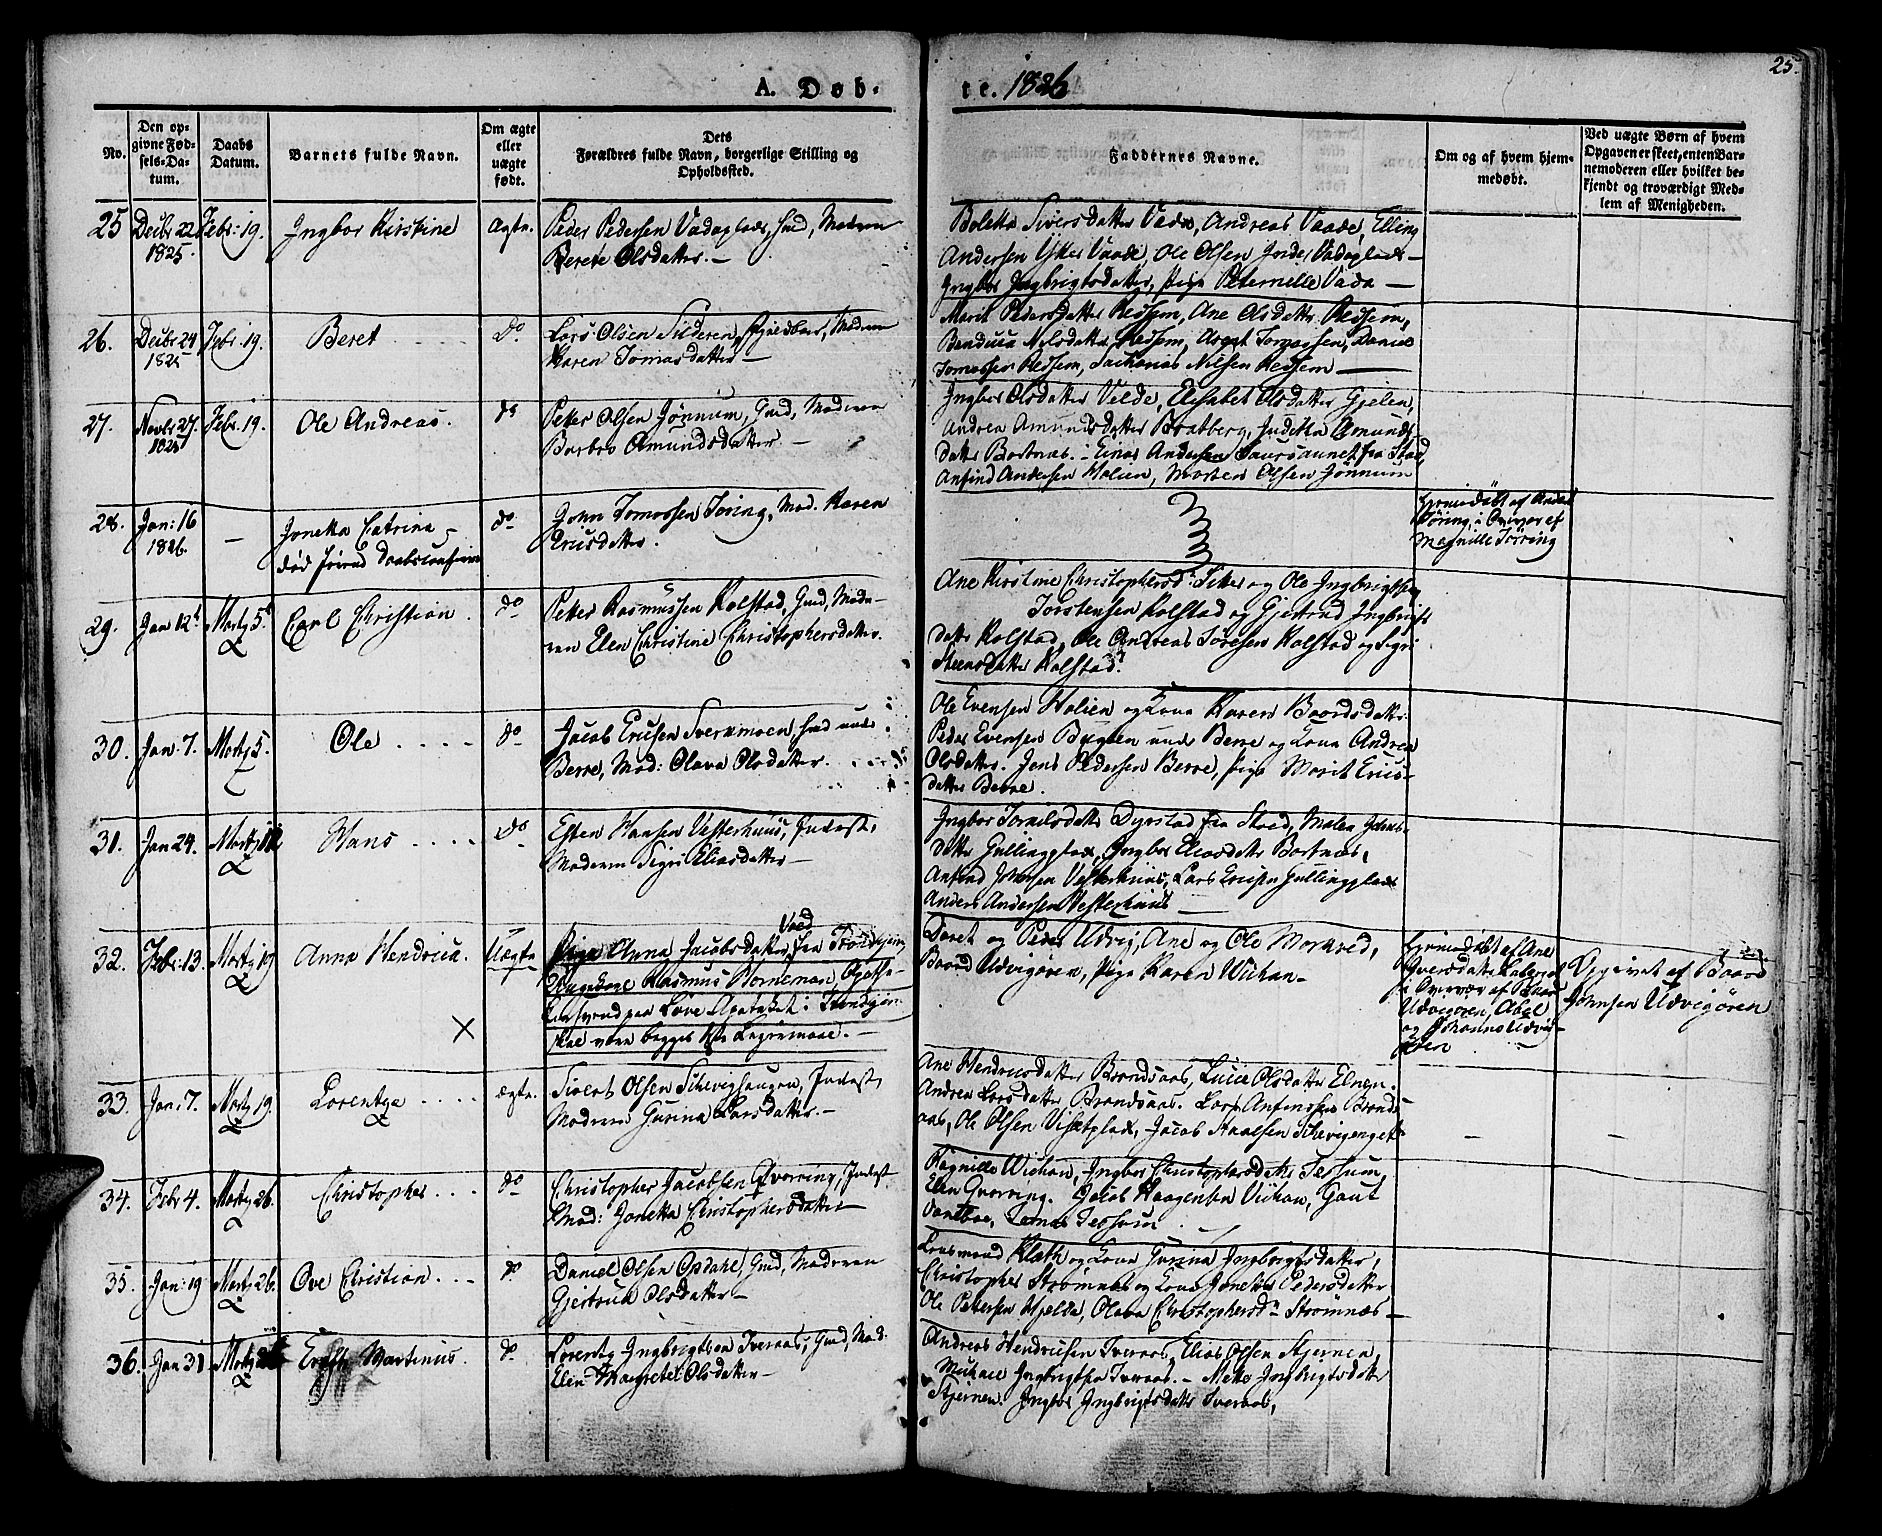 25.
A. Døb-
te. 1826
No.
Den op-
givne Fød-
sels-Da-
tum.
Daabs
Datum.
Barnets fulde Navn.
Om ægte
eller
uægte
født.
Dets
Forældres fulde Navn, borgerlige Stilling og
Opholdssted.
Faddernes Navne.
Om og af hvem hjem-
medøbt.
Ved uægte Børn af hvem
Opgaven er skeet, enten Bar-
nemoderen eller hvilket be-
kjendt og troværdigt Med-
lem af Menigheden.
25 Decbr 22 Febr: 19. Ingbor Kirstine Ægte.
1825.
Peder Pedersen Vadaplads, Moderen
Berete Olsdatter. —
Andreas Vaade, Elling
Andersen Vaade, Ole Olsen
Ingbor Ingbrigtsdatter, Pige Peternelle Vada —
26. Decbr 24 Febr. 19. Beret do
1825
Lars Olsen Moderen
Karen Tomasdatter —
Marit Pedersdatter Ressem, Ane Olsdatter Ressem,
Nilsdatter Ressem, Tomassen,
Tomassen Ressem, Zacharias Nilsen Ressem —
27. Novbr 27. Febr. 19. Ole Andreas. do
1825
Petter Olsen Jønnum, Gmd, Moderen
Barbro Amundsdatter. —
Ingbor Olsdatter Velde, Elisabet Olsdatter Gjelen,
Andrea Amundsdatter Bratberg, Amunds-
datter Bortnæs. — Einar Andersen fra Stod,
Anfind Andersen Holien, Morten Olsen Jønnum
28. Jan: 16 — Joneka Catrina do
1826.
John Tomassen Tøring, Mod. Karen
Ericsdatter.
Hjemmedøbt af
Tøring, i Overvær af
Magnille Tørring
29. Jan 12t Marty 5t Carl Christian. do
Petter Rasmussen Kolstad, Gmd, Mode-
ren Elen Christine Christophersdatter.
Ane Kirstine Christophersd: og Ole Ingbrigtsen
Torstensen Kolstad og Gjertrud Ingbrigts
datter Kolstad, Ole Andreas Tøresen Kolstad og Sigri
Steensdatter Kolstad.
30. Jan. 7. Marty 5. Ole do
Jacob Ericsen Sverkmoen, under
Berre, Mod: Olava Olsdatter.
Ole Evensen Holien og Kona Karen Baardsdatter.
Peder Evensen under Berre og Kona Andrea
Olsdatter. Jens Pedersen Berre, Pige Marit Erics-
datter Berre.
31. Jan 24. Marty Hans do
Esten Hansen Vesterhuus, Inderst,
Moderen Sigri Eliasdatter —
Ingbor Dyrstad fra Stod, Malen
datter Gullingplads, Ingbor Eliasdatter Bortnæs,
Anfind Johnsen Vesterhuus, Lars Ericsen Gullingplads
Anders Andersen Vesterhuus —
32. Febr: 13. Marty 19 Anna Hendrica. Uægte
Pige Anna Jacobsdatter Vaed fra Trondhjem,
Ungekarl Rasmus Horneman,
paa Løve Apotheket i Trondhjem
skal være begges 1ste Leiermaal. —
Beret og Peder Udvig, Ane og Ole Morkved,
Baard Udvigøren, Pige Karen Wichan —
Hjemmedøbt af Ane
Iversdatter
i Overvær af
Udvigøren, Abel
og Johannes Udvig-
øren
Opgivet af Baard
Johnsen Udvigøren
33. Jan: 7. Marty 19. Lorentza ægte.
Sivert Olsen Schevighaugen, Inderst,
Moderen Gurina Larsdatter —
Ane Hendricsdatter Brandsaas, Lucie Olsdatter Elnen.
Andrea Larsdatter Brandsaas. Lars Anfinsen Brands-
aas, Ole Olsen Visetplads, Jacob Staalsen Schevigenget
34. Febr 4. Marty 26. Christopher do
Christopher Jacobsen Qvarring, Inderst
Mod: Joneka Christophersdatter —
Magnille Wichan, Ingbor Christophersdatter Tessum,
Elen Qvarring. Jacob Haagensen Vichan, Gaut
Tessum.
35. Jan: 19 Marty 26. Ove Christian do
Daniel Olsen Opdahl, Gmd, Moderen
Gjertrud Olsdatter —
Lensmand Klæth og Kona Gurina Ingborgtsdatter,
Christopher Strømnæs og Kona Joneka Pedersdatter
Ole Petersen Hjelde, Olava Christophersd: Strømnæs —
36. Jan 31 Marty Martinus. do
Lorentz Ingbrigtsen Tveraas, Gmd, Mod.
Elen Margrete Olsdatter —
Andreas Hendricsen Tveraas, Elias Olsen Stjernen,
Michael Ingbrigtsen Tveraas. — Mette Ingbrigtsdatter
Stjernen. Ingbor Ingbrigtsdatter Tveraas,